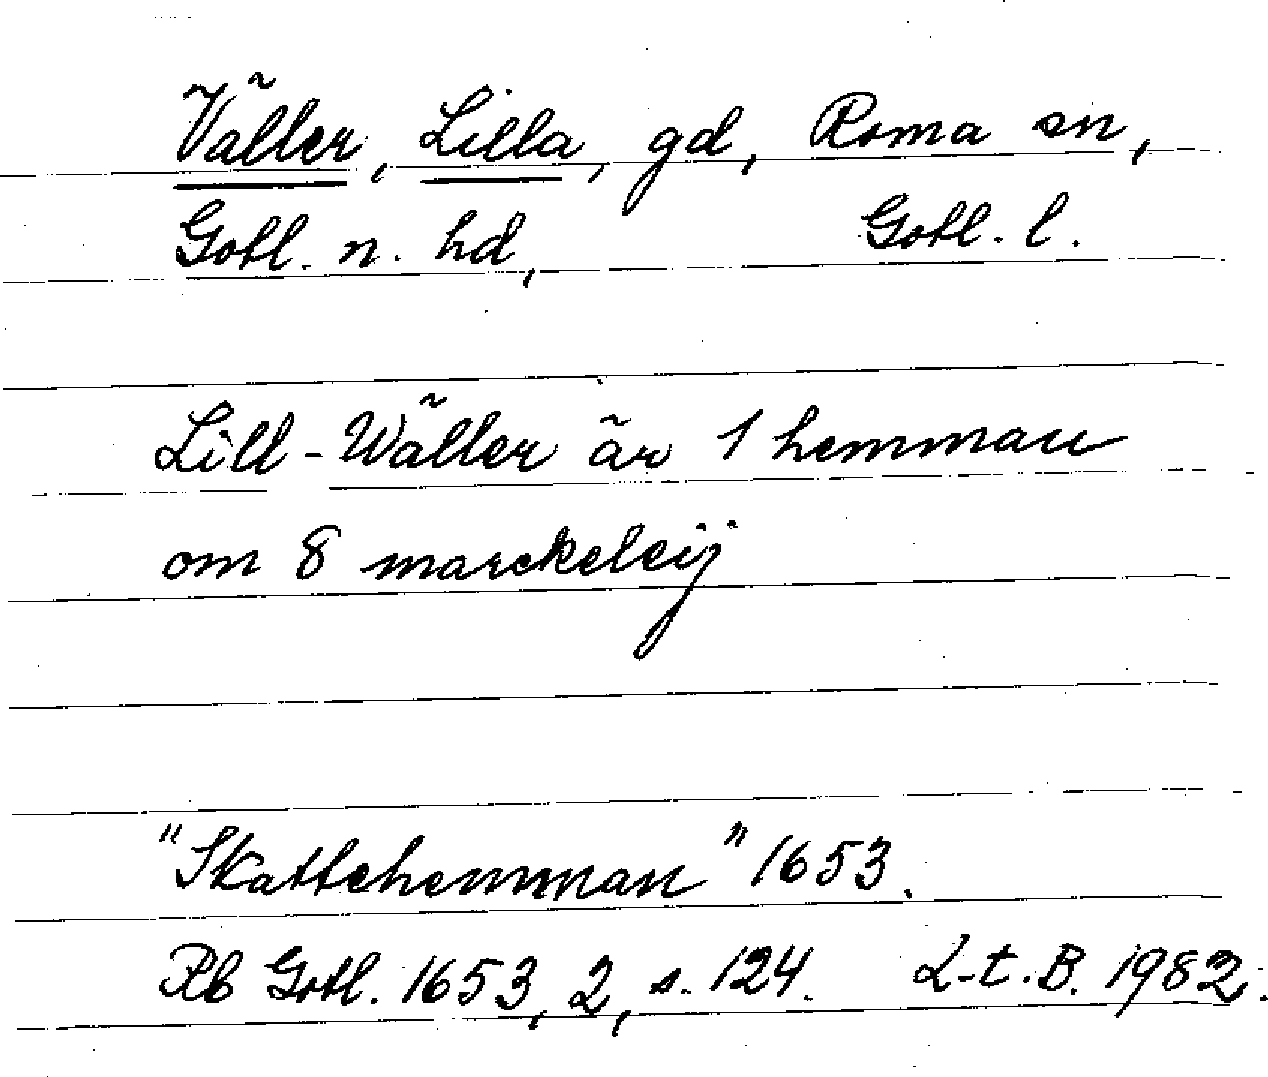 Väller, Lilla, gd, Roma sn,
Gotl. n. hd, Gotl. l.
Lill-Wäller är 1 hemman
om 8 marckeleij
"Skattehemman" 1653.
Rb Gotl. 1653, 2, s. 124. L-t. B. 1982.